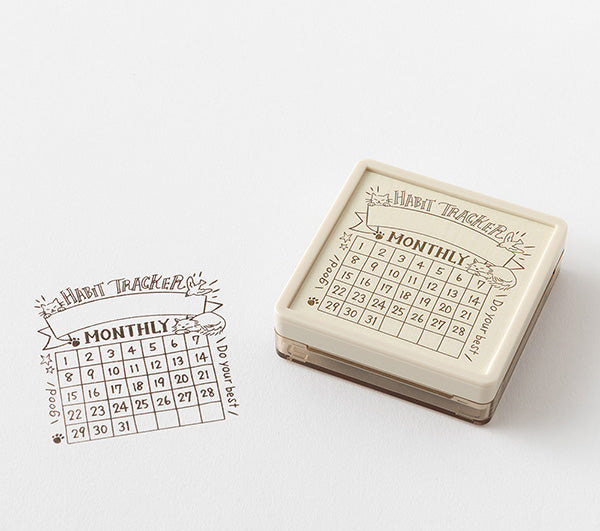 HABIT TRACKER
MONTHLY
1 2 3 4 5 6 7
8 9 10 11 12 13 14
15 16 17 18 19 20 21
22 23 24 25 26 27 28
29 30 31
good!
Do your best!
HABIT TRACKER
MONTHLY
1 2 3 4 5 6 7
8 9 10 11 12 13 14
15 16 17 18 19 20 21
22 23 24 25 26 27 28
29 30 31
good!
Do your best!